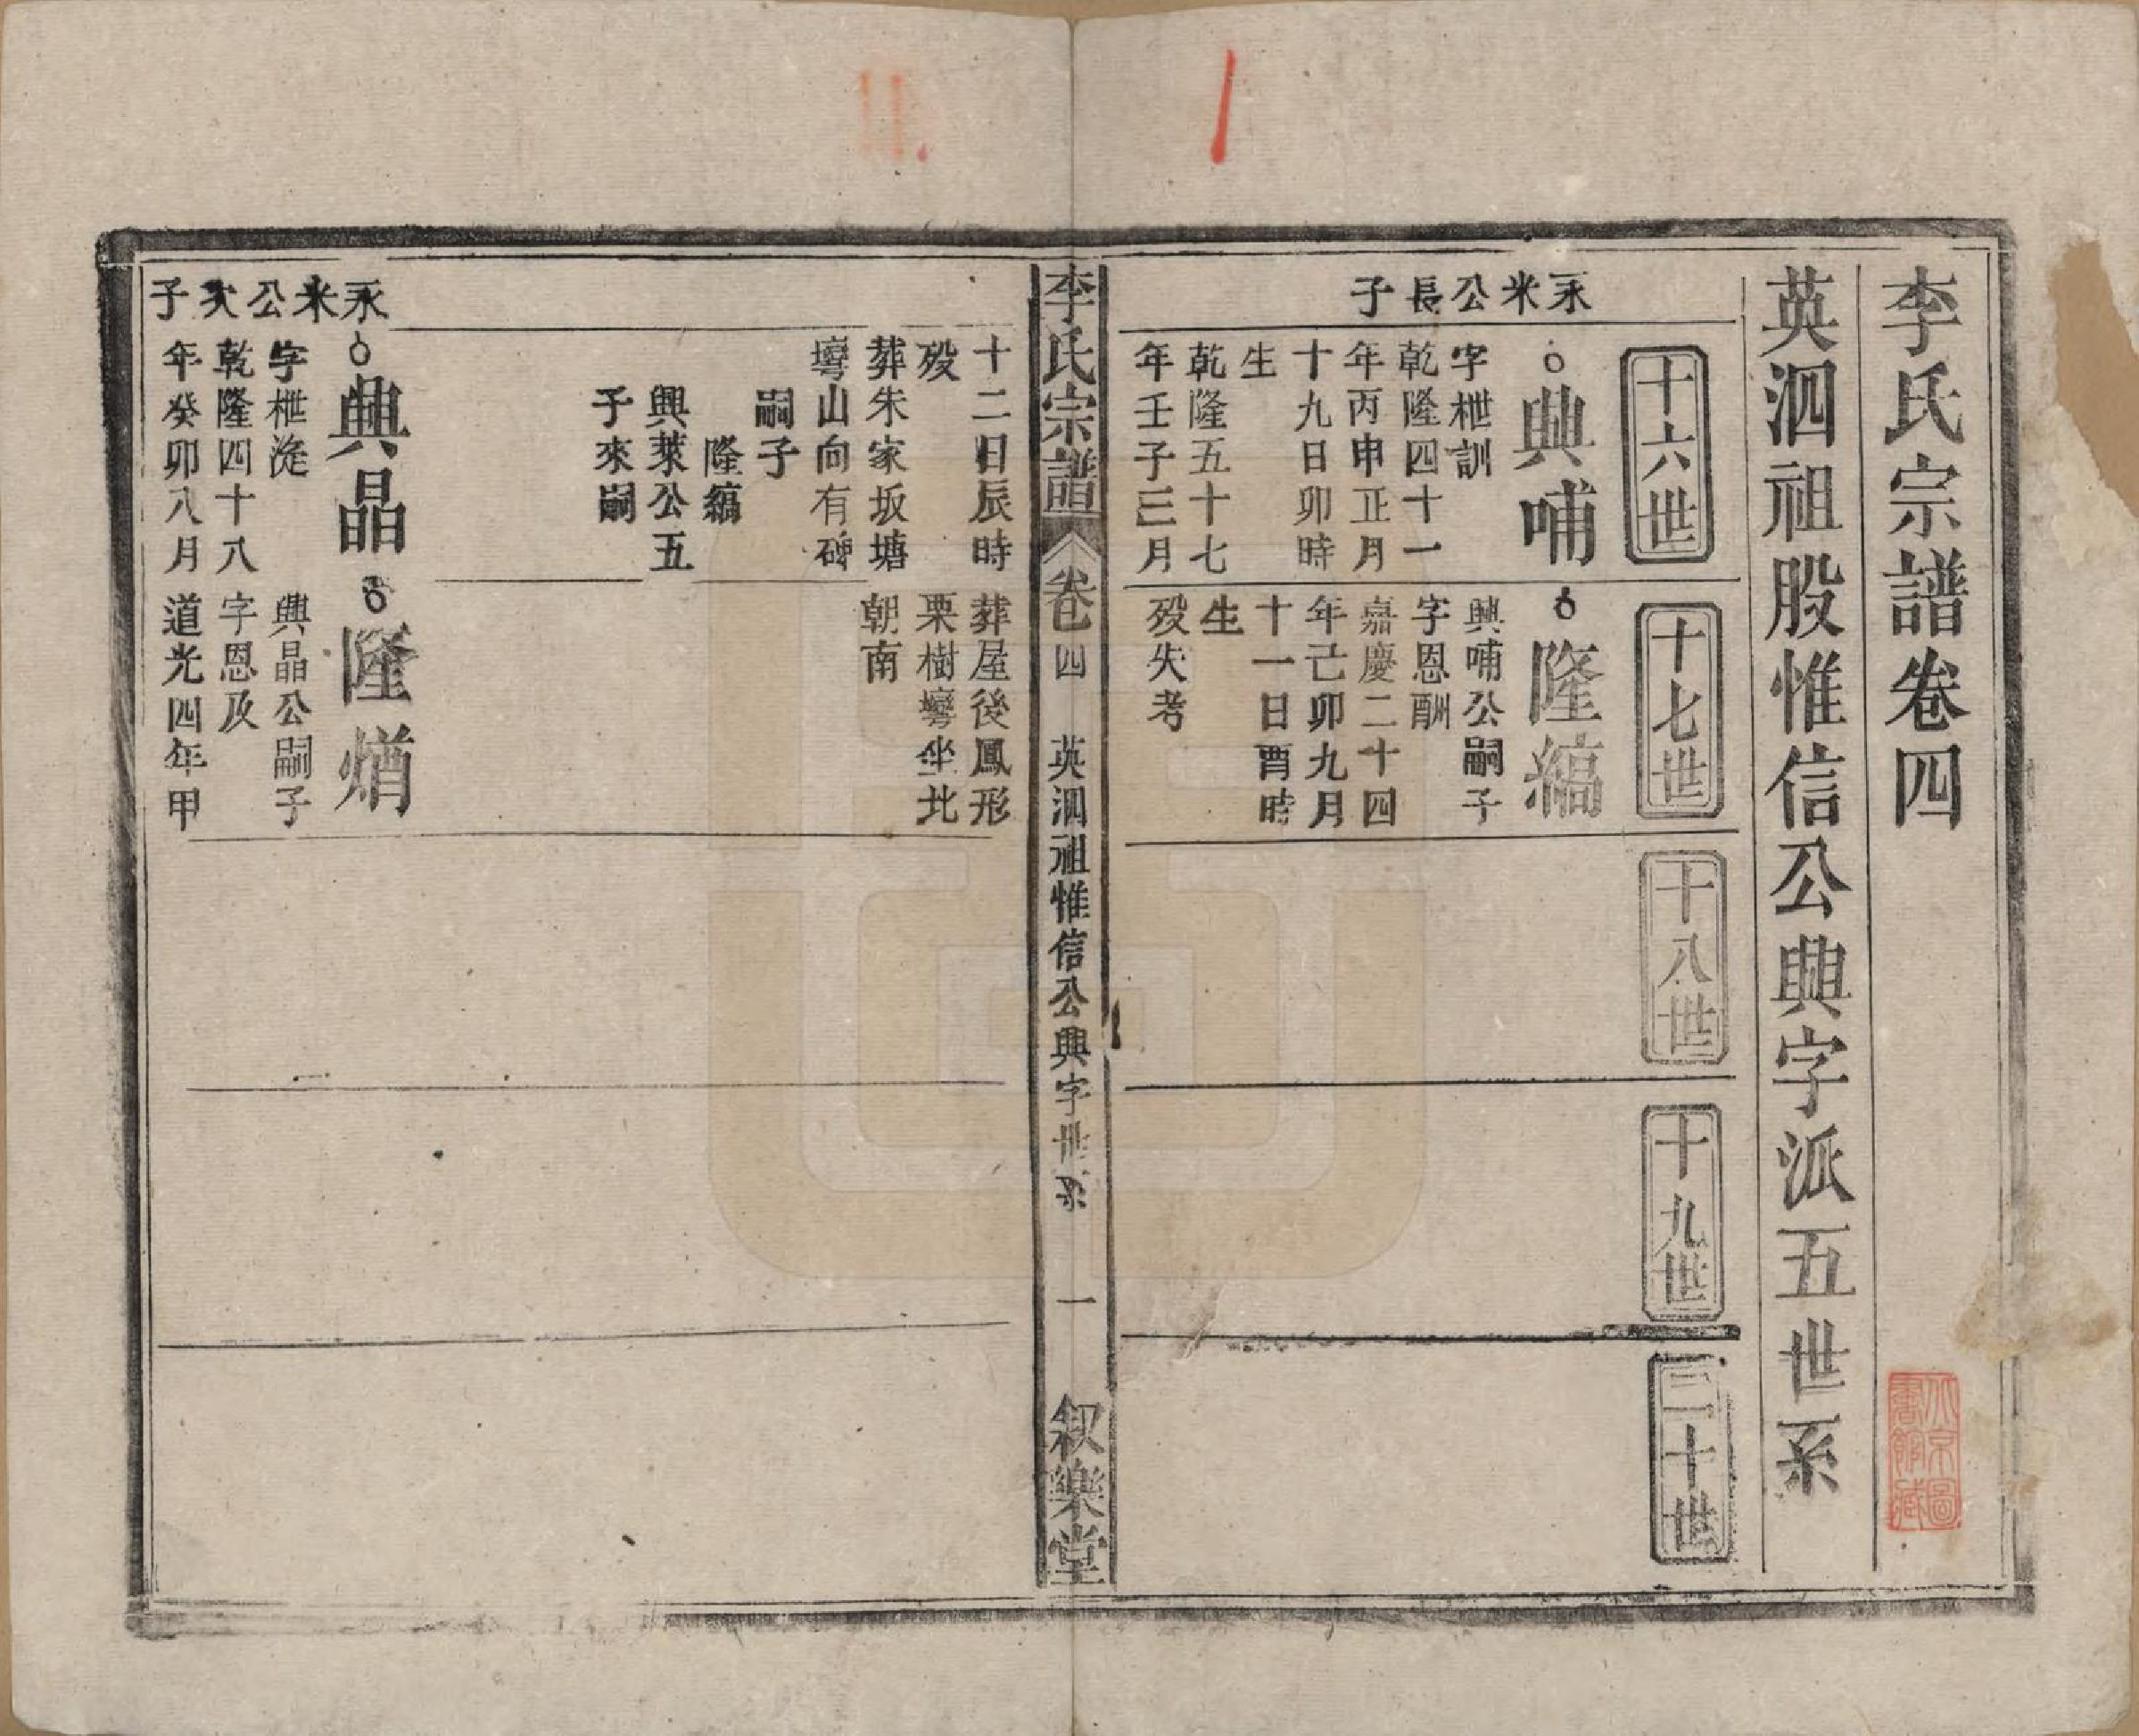 李氏宗譜卷四
英泗祖股惟信公興字派五世系
十六世
十七世
十八世
十九世
二十世
永米公長子
興哺
字枻訓
乾隆四十一
年丙申正月
十九日卯時
生
乾隆五十七
年壬子三月
隆縞
興哺公嗣子
字恩酬
嘉慶二十四
年己卯九月
十一日酉時
生
歿失考
李氏宗譜
卷四
英泗祖惟信公興字世系
一
叙樂堂
十二日辰時
歿
葬朱家坂塘
塆山向有碑
嗣子
隆縞
興萊公五
子來嗣
葬屋後鳳形
栗樹塆坐北
朝南
永米公次子
興晶
字枻淀
乾隆四十八
年癸卯八月
隆熷
興晶公嗣子
字恩及
道光四年甲
北京圖
書館藏